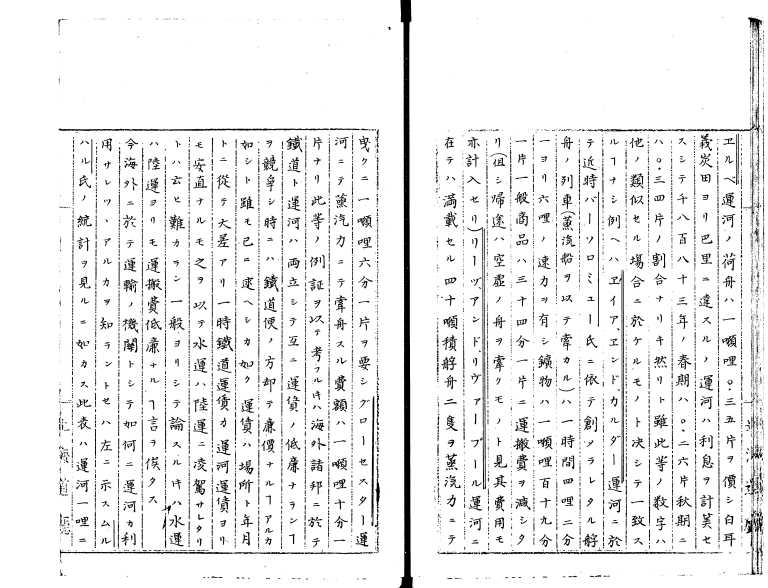 ヱルベ運河ノ荷舟ハ一噸哩〇.三五片ヲ價シ白耳
義炭田ヨリ巴里ニ達スルノ運河ハ利息ヲ計算セ
スシテ千八百八十三年ノ春期ハ〇.二六片秋期ニ
ハ〇.三四片ノ割合ナリキ然リト雖此等ノ数字ハ
他ノ類似セル場合ニ於ケルモノト决シテ一致ス
ルヿナシ例ヘハヱイア、ヱンド、カルダー運河ニ於
テ近時バーソロミュー氏ニ依テ創メラレタル艀
舟ノ列車(蒸汽船ヲ以テ牽カル)ハ一時間四哩二分
一ヨリ六哩ノ速力ヲ有シ鑛物ハ一噸哩百十九分
一片一般商品ハ三十四分一片ニ運搬費ヲ減シタ
リ(但シ帰途ハ空虚ノ舟ヲ牽クモノト見其費用モ
亦計入セリ)リーヅ、アンド、リヴァープール運河ニ
在テハ満載セル四十噸積艀舟二隻ヲ蒸汽力ニテ
曳クニ一噸哩六分一片ヲ要シグローセスター運
河ニテ蒸汽力ニテ牽舟スル費額ハ一噸哩十分一
片ナリ此等ノ例証ヲ以テ考フルキハ海外諸邦ニ於テ
鐵道ト運河ハ両立シテ互ニ運賃ノ低廉ナランヿ
ヲ競爭シ時ニハ鐵道便ノ方却テ廉價ナルヿアルカ
如シト雖モ已ニ述ヘシカ如ク運賃ハ場所ト年月
トニ從テ大差アリ一時鐵道運賃カ運河運賃ヨリ
モ安直ナルモ之ヲ以テ水運ハ陸運ニ凌駕サレタリ
トハ云ヒ難カラン一般ヨリシテ論スルキハ水運
ハ陸運ヨリモ運搬費低廉ナルヿ言ヲ俟タス
今海外ニ於テ運輸ノ機関トシテ如何ニ運河カ利
用サレツヽアルカヲ知ラントセハ左ニ示スムル
ハル氏ノ統計ヲ見ルニ如カス此表ハ運河一哩ニ